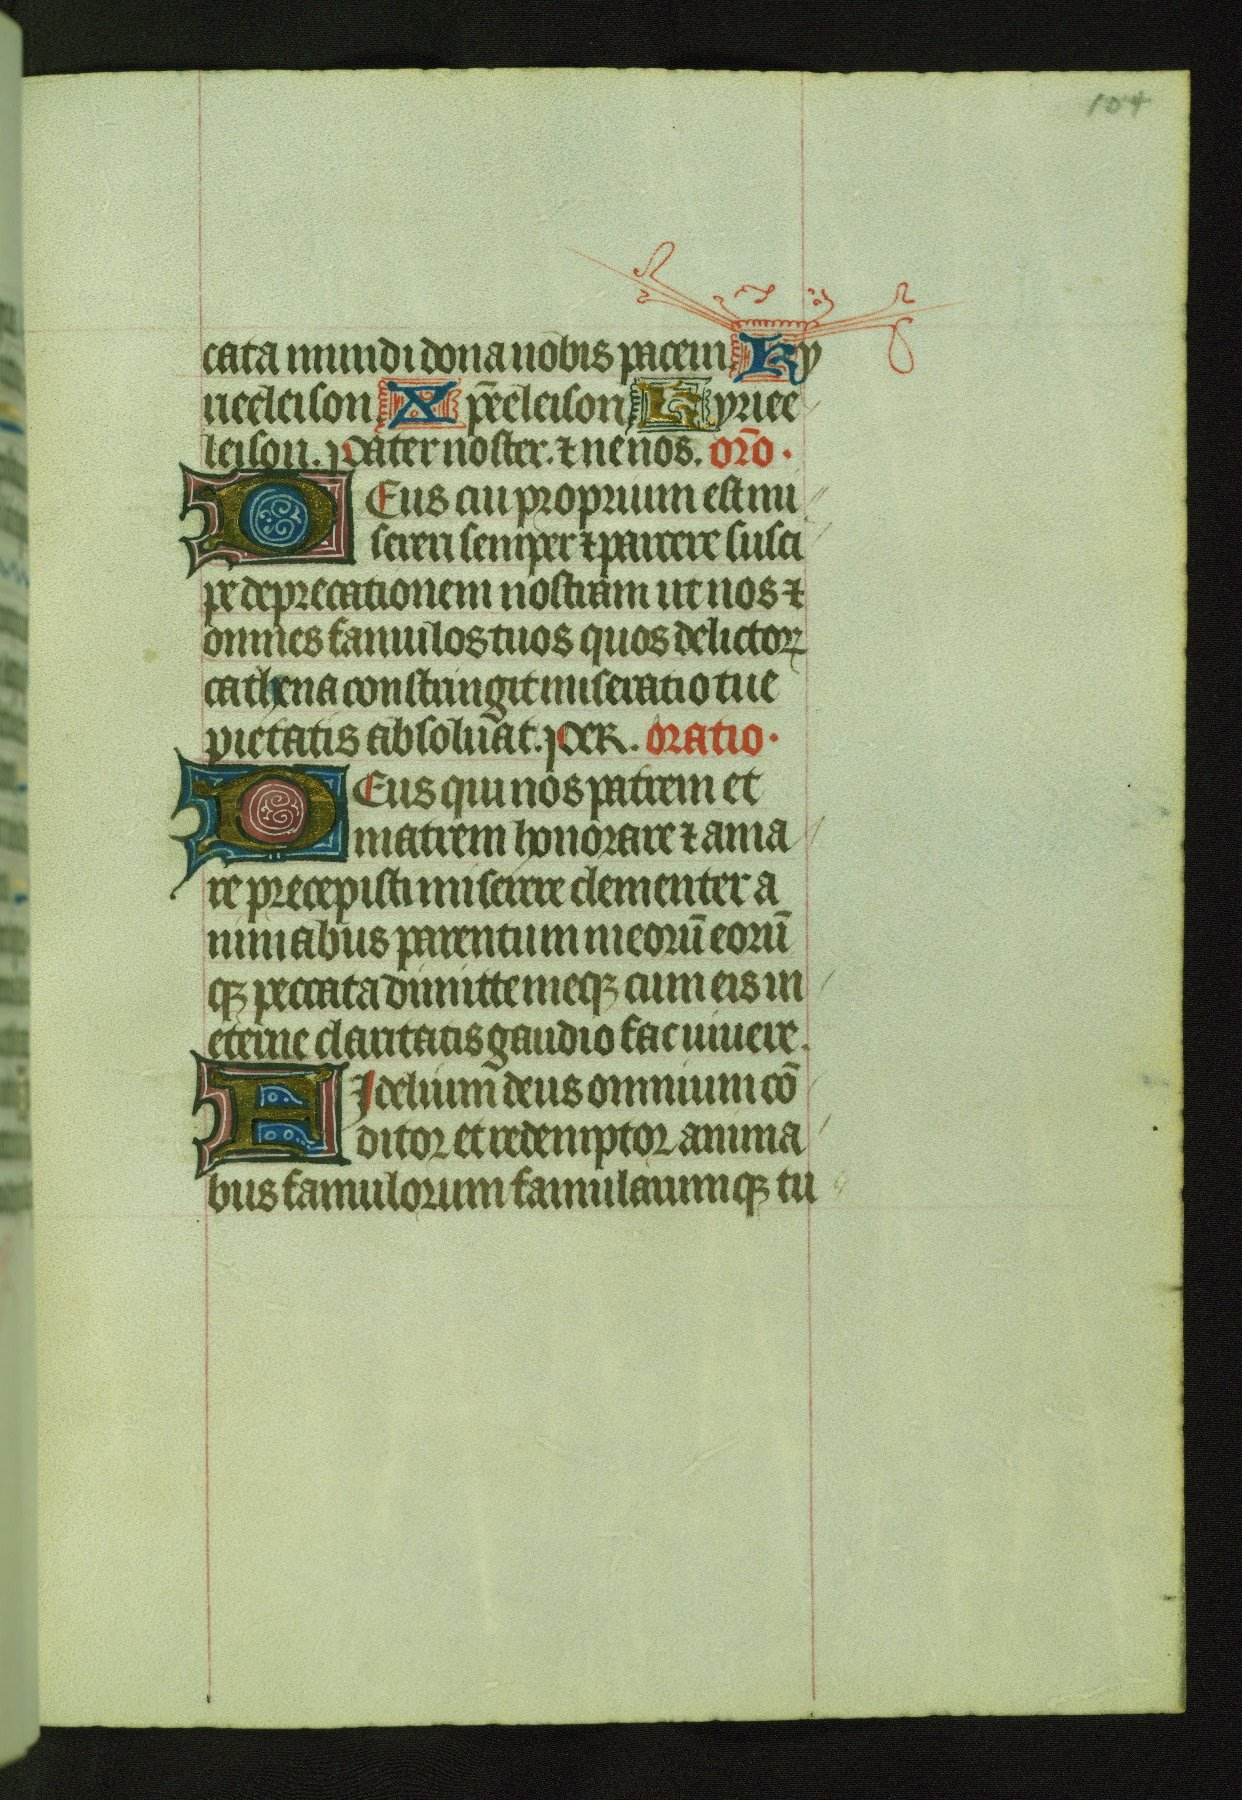 104
cata mundi dona nobis pacem Ky
rieeleison Xp̄eeleison Kyriee
leison. Pater noster. ⁊ ne nos. or̄o.
DEus cui proprium est mi
sereri semper ⁊ parcere susci
pe deprecationem nostram ut nos ⁊
omnes famulos tuos quos delictoꝝ
cathena constringit miseratio tue
pietatis absoluat. PER. oratio.
DEus qui nos patrem et
matrem honorare ⁊ ama
re precepisti miserere clementer a
nimabus parentum meorū eorū
qꝫ peccata dimitte meqꝫ cum eis in
eterne claritatis gaudio fac uiuere.
FIdelium deus omnium cō
ditor et redemptor anima
bus famulorum famularumqꝫ tu